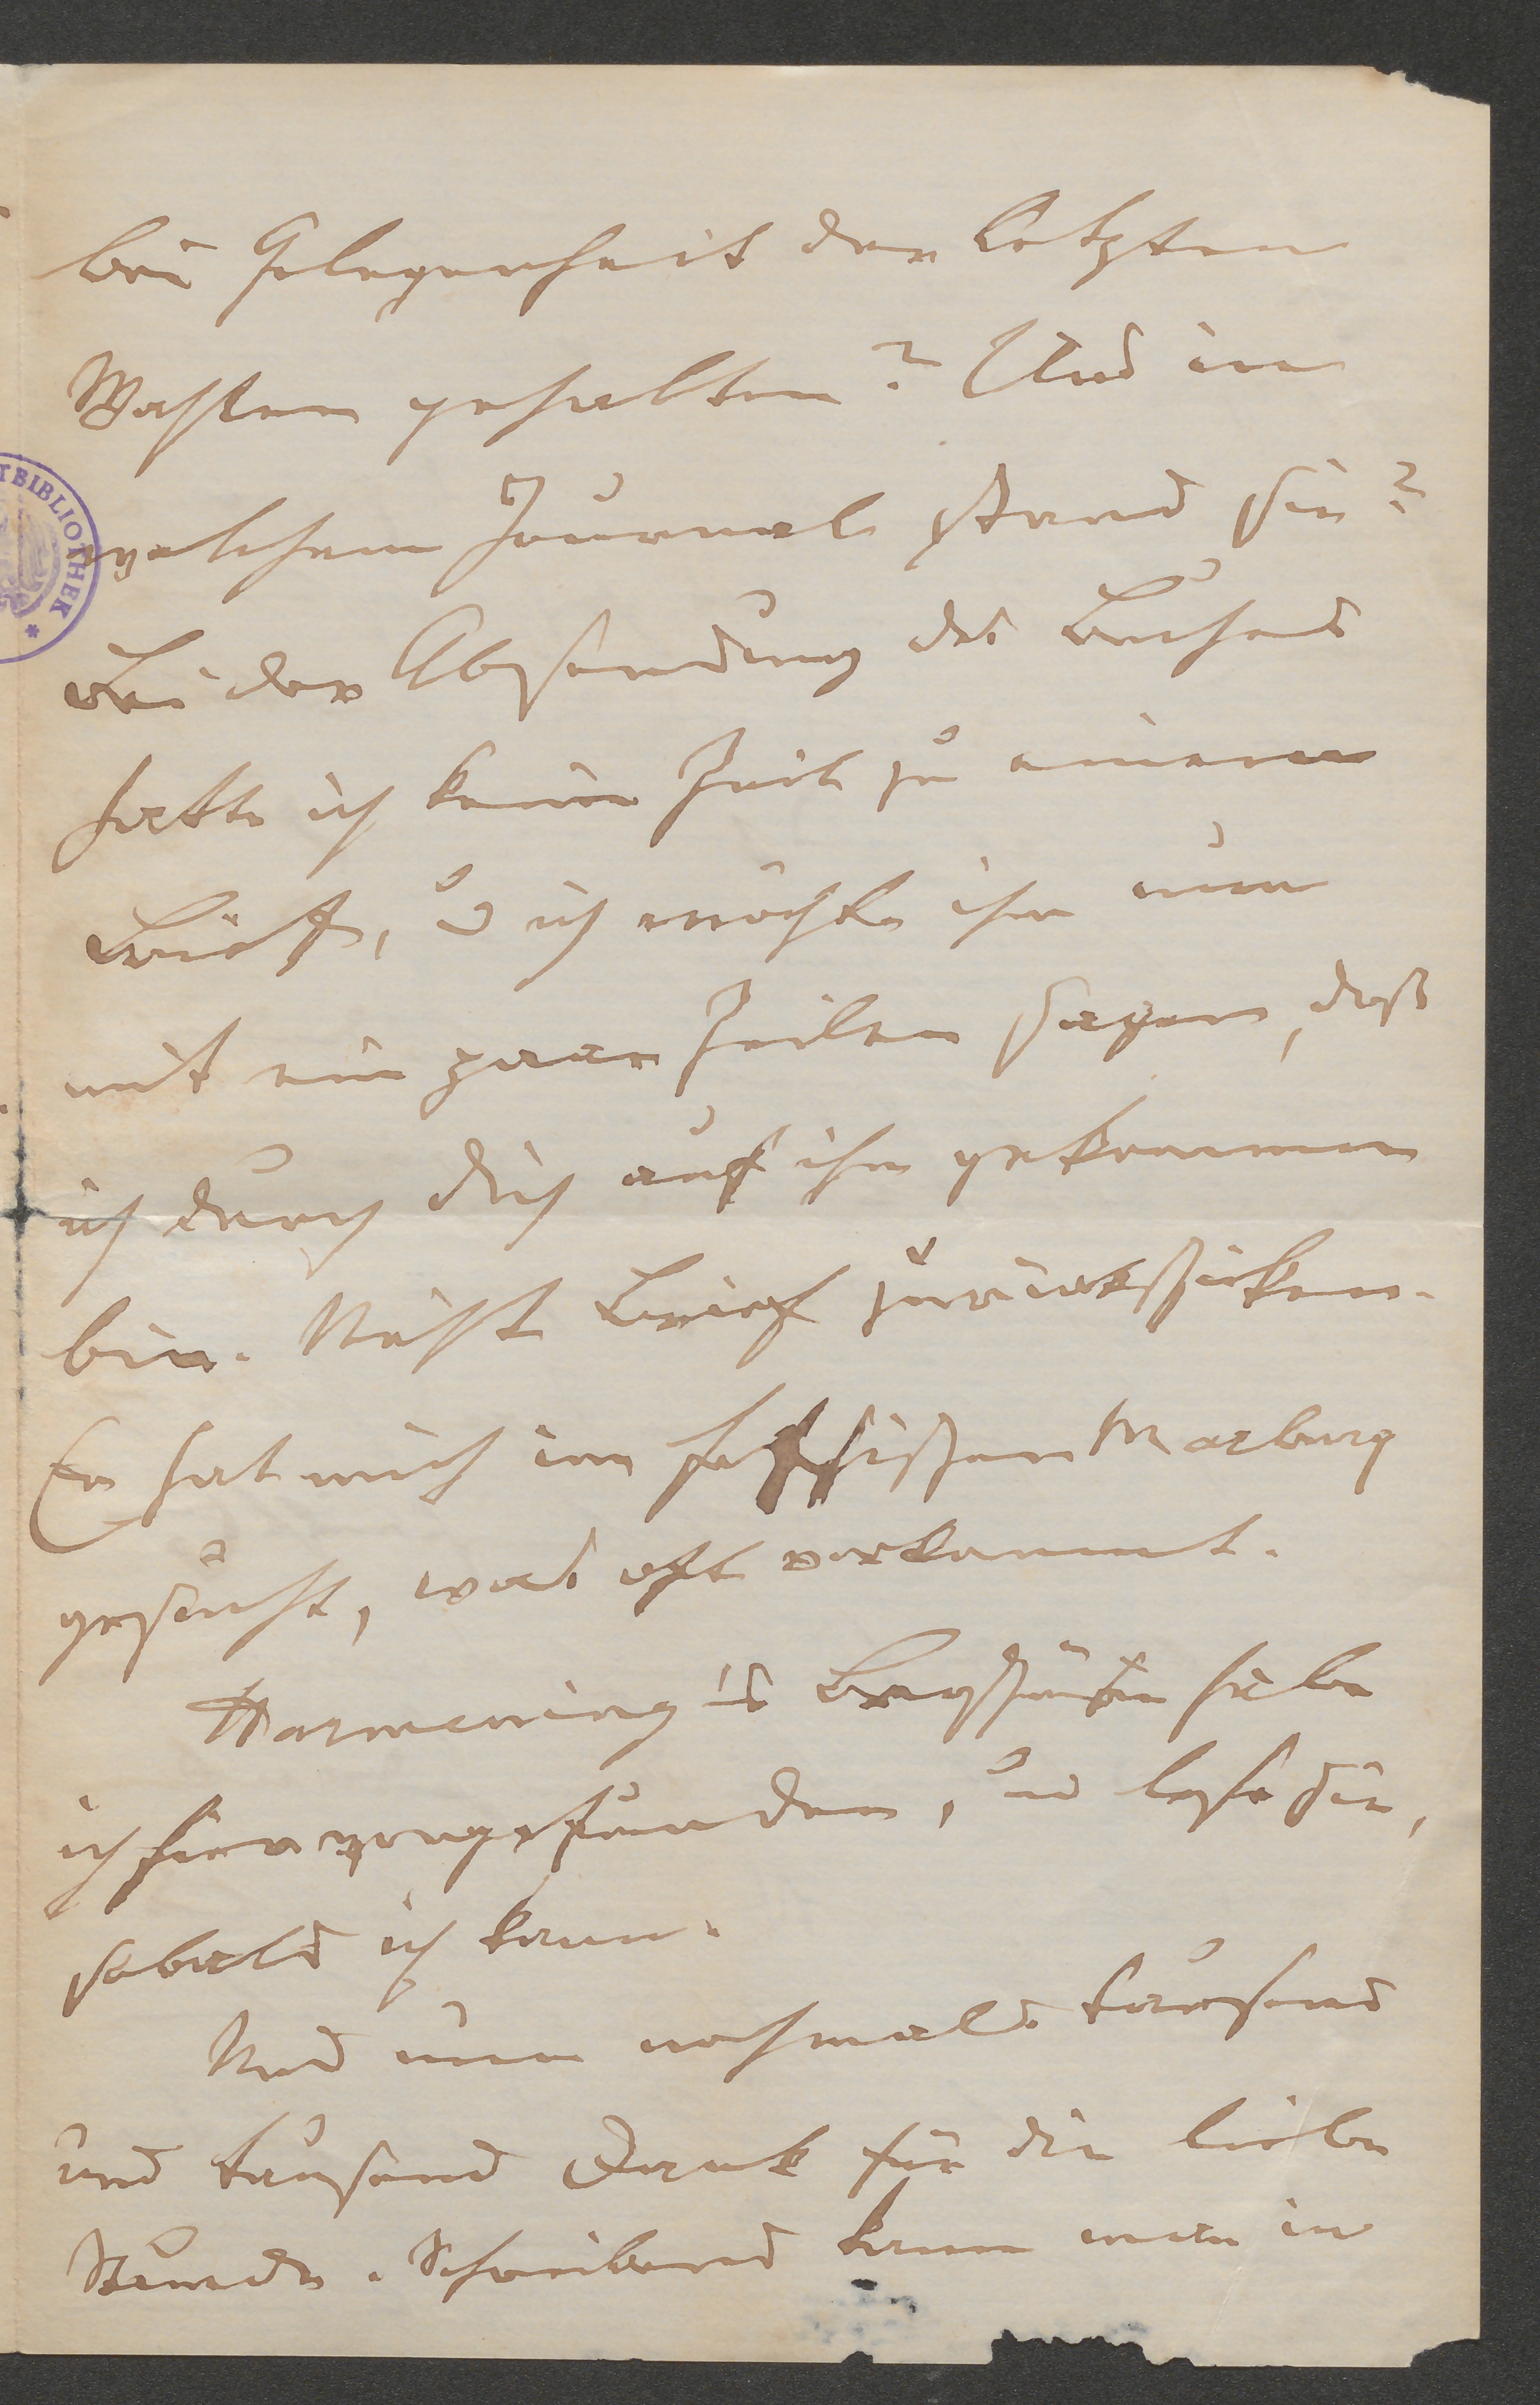 bei Gelegenheit der letzten
Wahlen gehalten? Und in
welchem Journal stand sie?
Bei der Absendung des Buches
hatte ich keine Zeit zu einem
Brief, u ich möchte ihm nun
mit ein paar Zeilen sagen, daß
ich durch dich auf ihn gekommen
bin. Nächst Brief zurückschicken.
Er hat mich im hessischen Marburg
gesucht, was oft vorkommt.
Harmening's habe
ich hier vorgefunden, und lese sie,
sobald ich kann.
Und nun nochmals tausend
und tausend Dank für die liebe
Stunde. Schreibend kann man in
TBIBLIOTHEK *